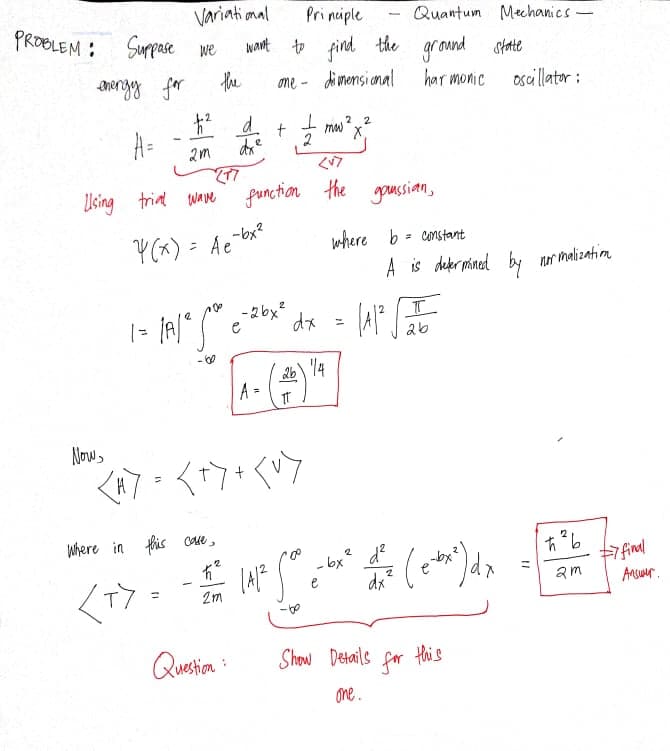 Variational Principle - Quantum Mechanics -
PROBLEM: Suppose we want to find the ground state
energy for the one-dimensional harmonic oscillator:
H = - ħ²/2m d/dx² + 1/2 mω²x²
<T> <V>
Using trial wave function the gaussian,
Ψ(x) = Ae^(-bx²) where b = constant
A is determined by normalization
1 = |A|² ∫_{-∞}^{∞} e^(-2bx²) dx = |A|² √(π/2b)
A = (2b/π)^(1/4)
Now,
<H> = <T> + <V>
Where in this case,
<T> = - ħ²/2m |A|² ∫_{-∞}^{∞} e^(-bx²) d²/dx² (e^(-bx²)) dx = ħ²b/2m ⇒ final Answer.
Question: Show Details for this
one.